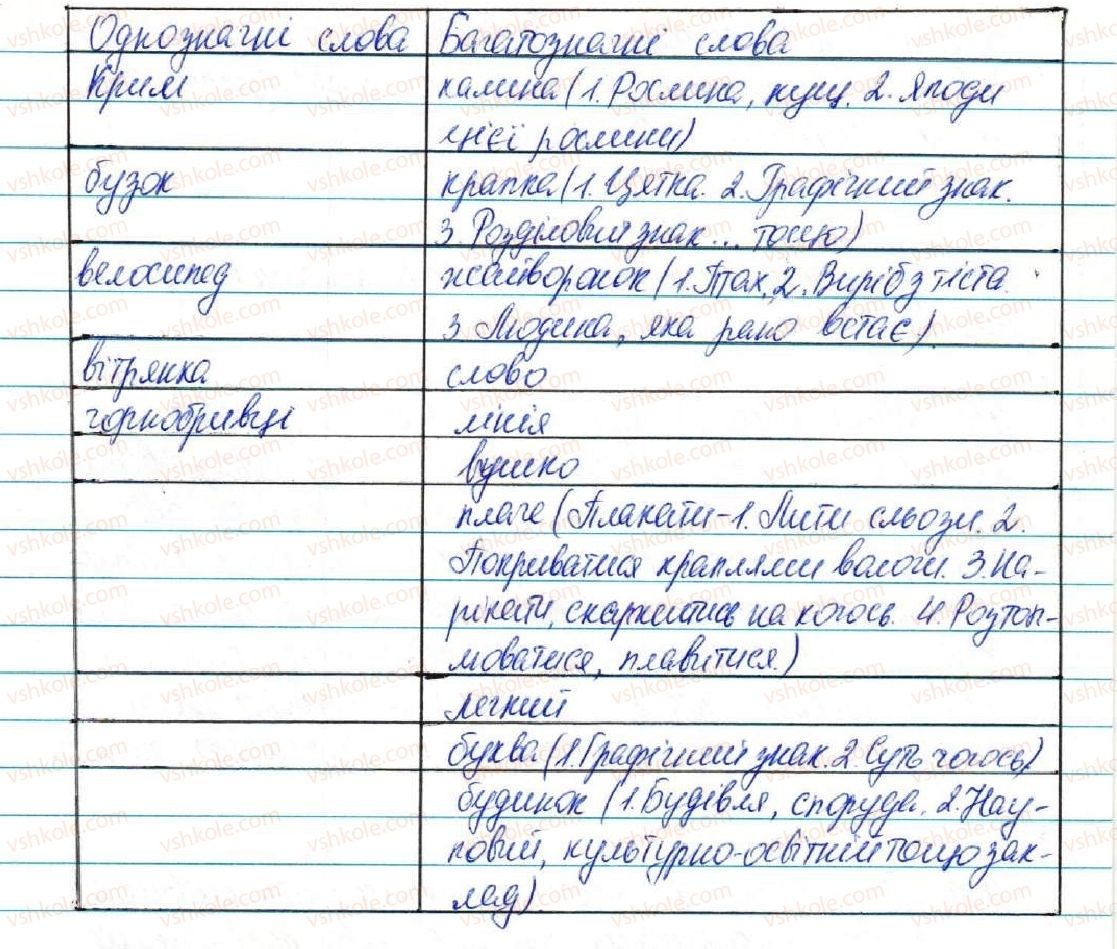 Однозначні слова Багатозначні слова
Крим калина (1. Рослина, кущ. 2. Ягоди
цієї рослини)
бузок крапка (1. Цятка. 2. Графічний знак.
3. Розділовий знак... тощо)
велосипед жайворонок (1. Птах. 2. Виріб з тіста.
3. Людина, яка рано встає)
вітрянка слово
чорнобривці лінія
вушко
плаче (Плакати - 1. Лити сльози. 2.
Покриватися краплями вологи. 3. На-
рікати, скаржитись на когось. 4. Розтоп-
люватися, плавитися.)
легкий
буква (1. Графічний знак. 2. Суть чогось)
будинок (1. Будівля, споруда. 2. Нау-
ковий, культурно-освітній тощо зак-
лад).